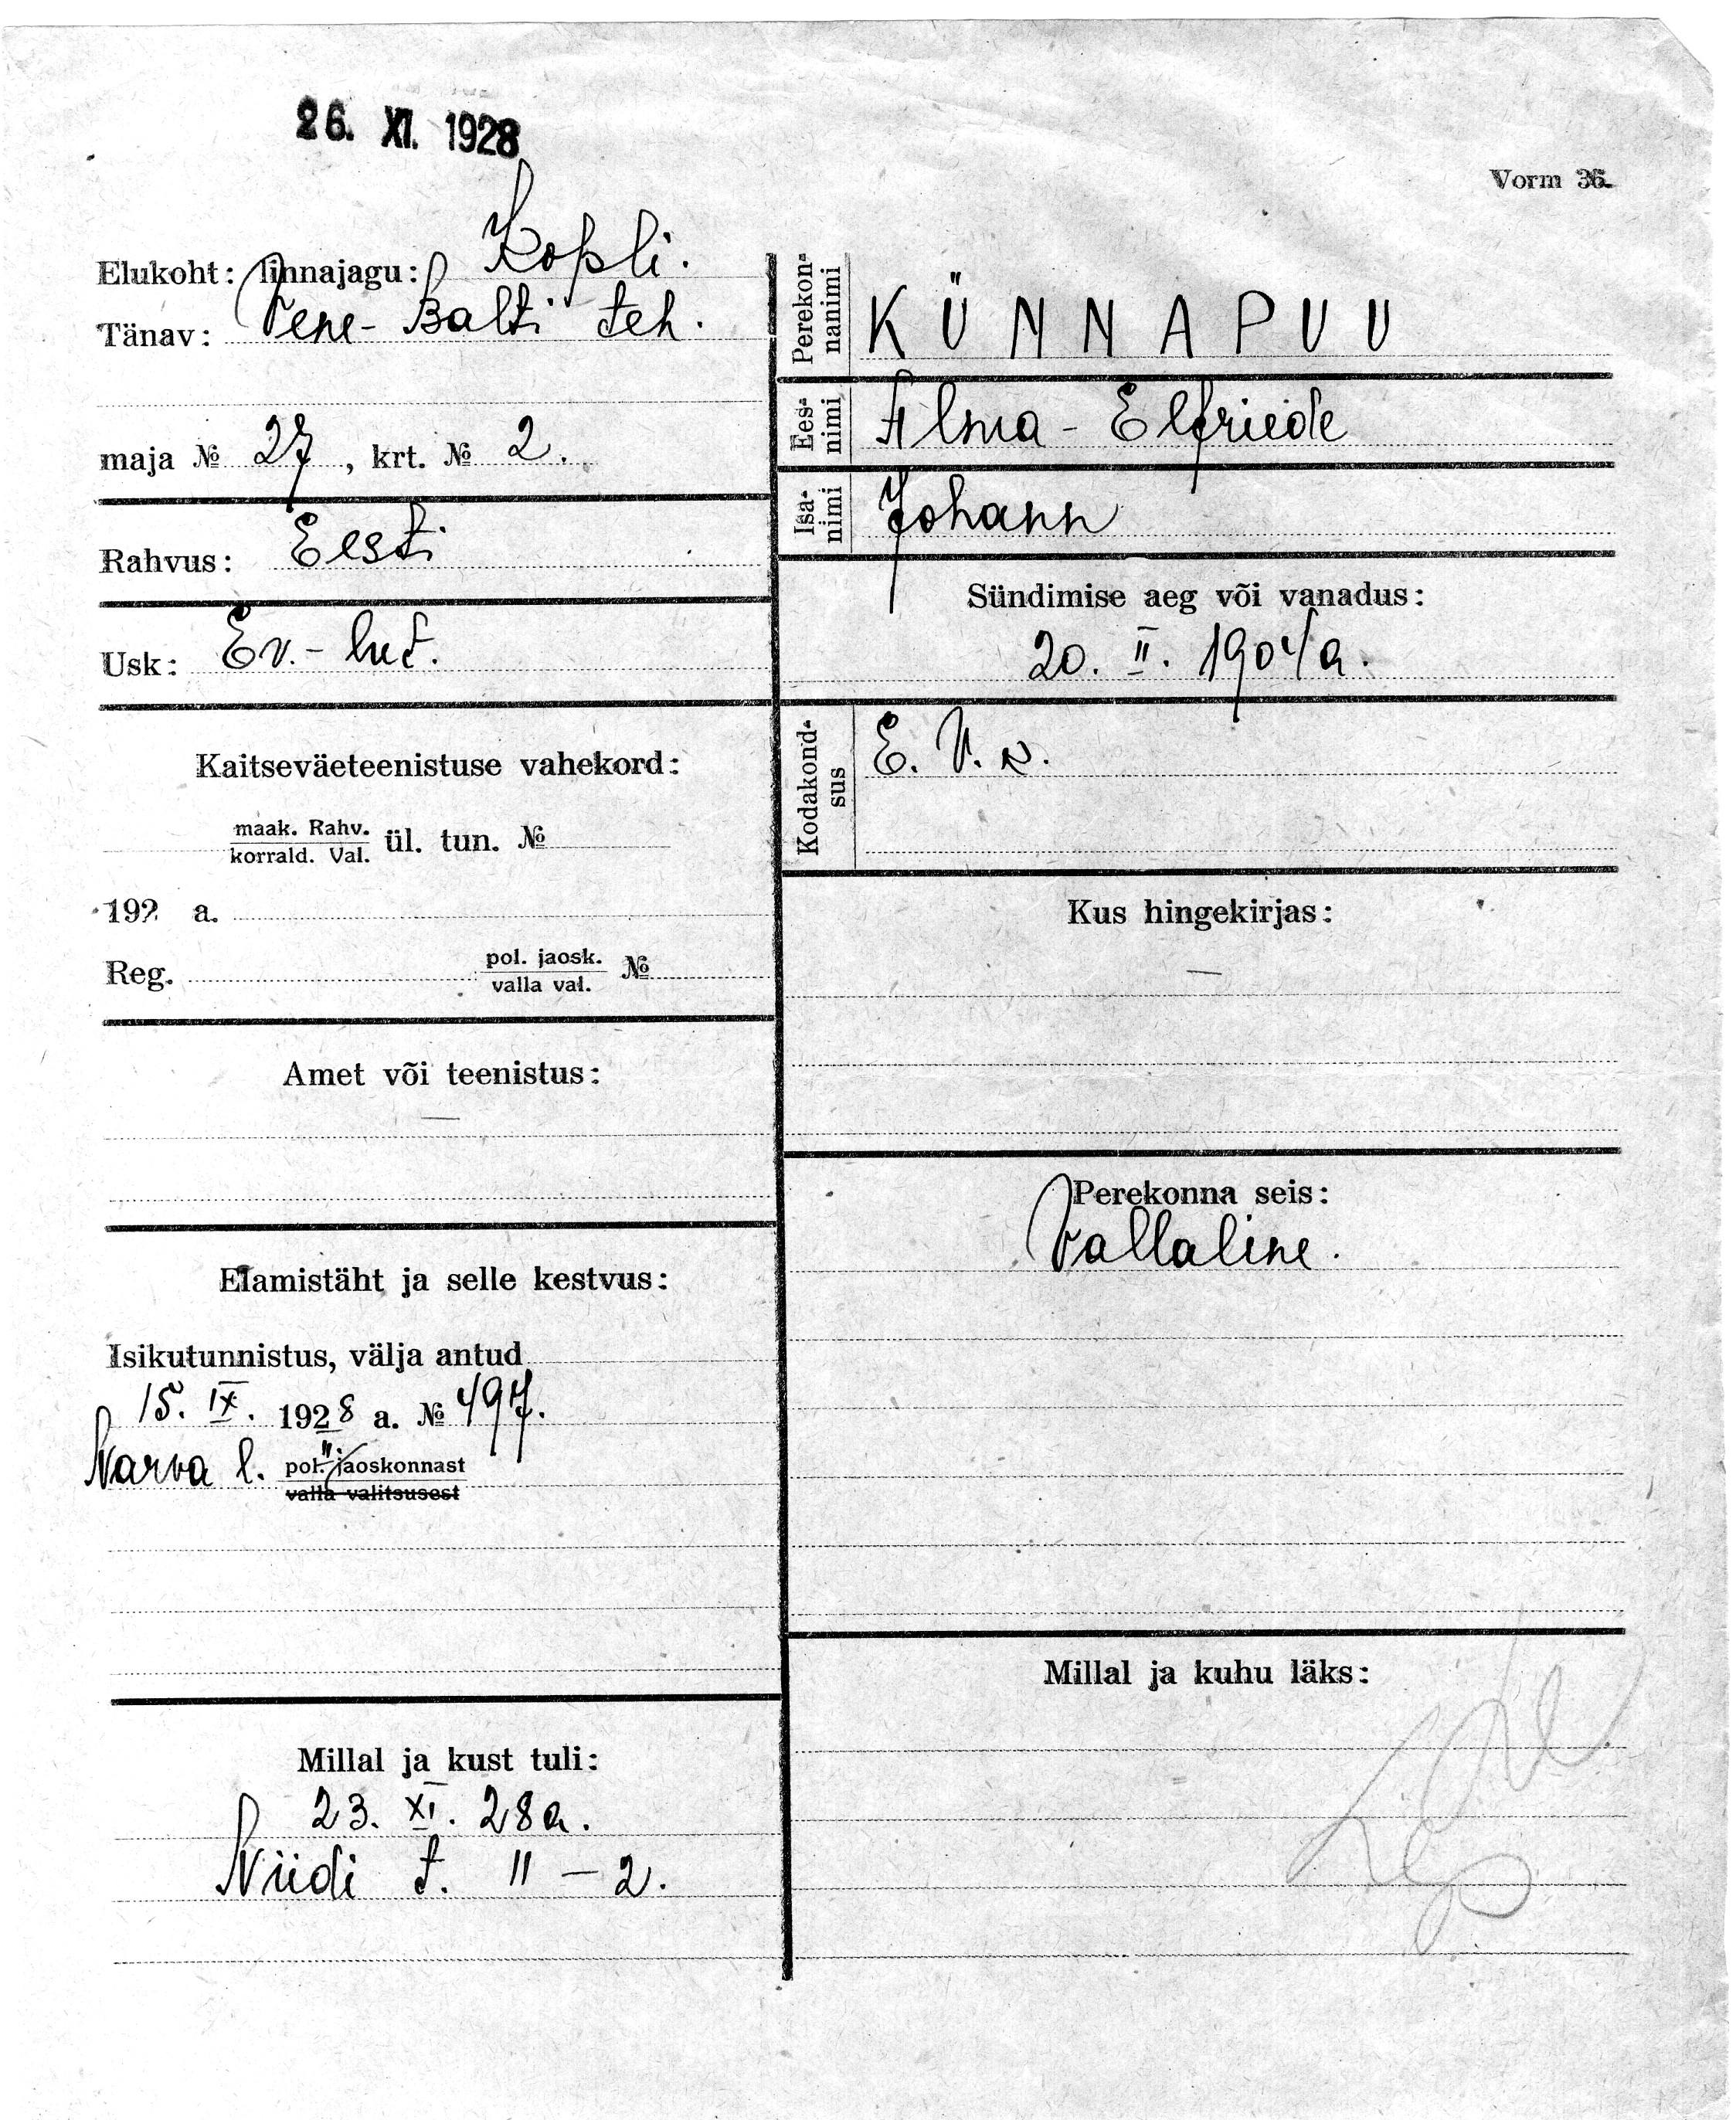 26. XI. 1928
Vorm 36.
Elukoht: linnajagu: Kopli.
Tänav: Vene-Balti teh.
maja № 27, krt. № 2.
Rahvus: Eesti
Usk: Ev.-lut.
Kaitseväeteenistuse vahekord:
maak. Rahv.
korrald. Val. ül. tun. №
192 a.
Reg. pol. jaosk.
valla val. №
Amet või teenistus:
—
Elamistäht ja selle kestvus:
Isikutunnistus, välja antud
15. IX. 1928 a. № 497.
Narva l. II. pol. jaoskonnast
valla valitsusest
Millal ja kust tuli:
23. XI. 28a.
Niidi t. 11 – 2.
Perekon-
nanimi
KÜNNAPUU
Ees-
nimi
Alma - Elfriede
Isa-
nimi
Johann
Sündimise aeg või vanadus:
20. II. 1904a.
Kodakond-
sus
E. V. k.
Kus hingekirjas:
—
Perekonna seis:
Vallaline.
Millal ja kuhu läks: